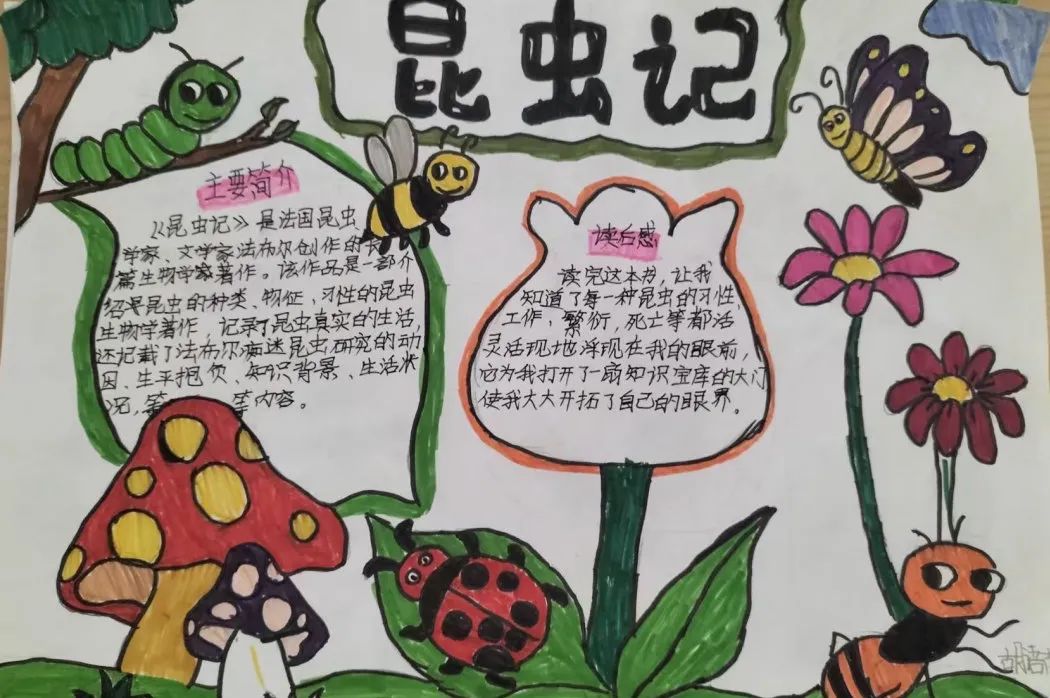 昆虫记
主要简介
《昆虫记》是法国昆虫
学家、文学家法布尔创作的长
篇生物学家著作。该作品是一部介
绍昆虫的种类、特征、习性的昆虫
生物学著作，记录了昆虫真实的生活，
还记载了法布尔痴迷昆虫研究的动
因、生平抱负、知识背景、生活状
况，等 等内容。
读后感
读完这本书，让我
知道了每一种昆虫的习性、
工作、繁衍，死亡等都活
灵活现地浮现在我的眼前，
它为我打开了一扇知识宝库的大门
使我大大开拓了自己的眼界。